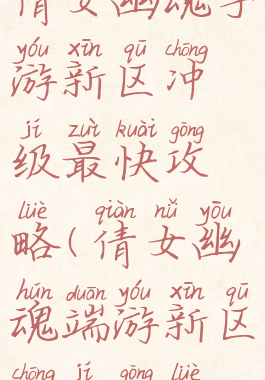 倩女幽魂手
yóu xīn qū chōng
游新区冲
jí zuì kuài gōng
级最快攻
lüè qiàn nǚ yōu
略(倩女幽
hún duān yóu xīn qū
魂端游新区
chōng jí gōng lüè